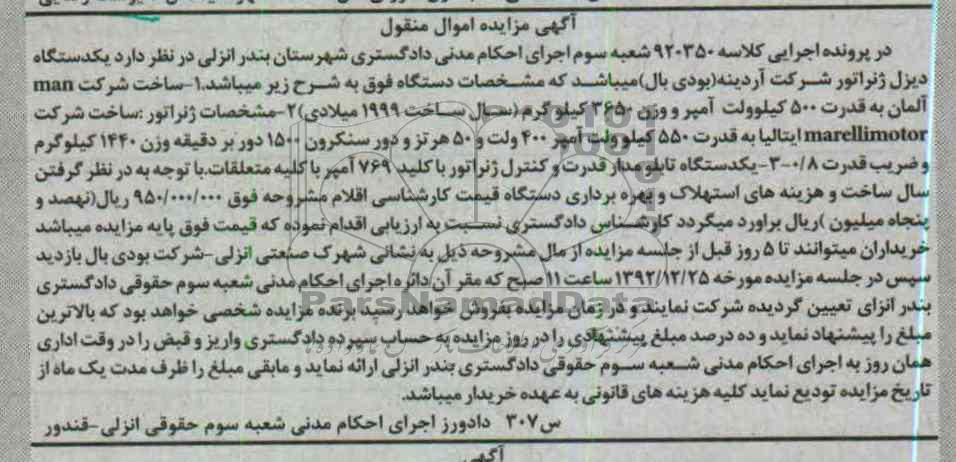 آگهی مزایده اموال منقول
در پرونده اجرایی کلاسه ۹۲۰۳۵۰ شعبه سوم اجرای احکام مدنی دادگستری شهرستان بندر انزلی در نظر دارد یکدستگاه
دیزل ژنراتور شرکت آردینه(بودی بال)میباشد که مشخصات دستگاه فوق به شرح زیر میباشد.۱-ساخت شرکت man
آلمان به قدرت ۵۰۰ کیلوولت آمپر و وزن ۳۶۵۰ کیلو گرم (سال ساخت ۱۹۹۹ میلادی)۲-مشخصات ژنراتور :ساخت شرکت
marellimotor ایتالیا به قدرت ۵۵۰ کیلو ولت آمپر ۴۰۰ ولت و ۵۰ هرتز و دور سنکرون ۱۵۰۰ دور بر دقیقه وزن ۱۴۴۰ کیلوگرم
و ضریب قدرت ۰/۸-۳-یکدستگاه تابلو مدار قدرت و کنترل ژنراتور با کلید ۷۶۹ آمپر با کلیه متعلقات.با توجه به در نظر گرفتن
سال ساخت و هزینه های استهلاک و بهره برداری دستگاه قیمت کارشناسی اقلام مشروحه فوق ۹۵۰/۰۰۰/۰۰۰ ریال(نهصد و
پنجاه میلیون )ریال براورد میگردد کارشناس دادگستری نسبت به ارزیابی اقدام نموده که قیمت فوق پایه مزایده میباشد
خریداران میتوانند تا ۵ روز قبل از جلسه مزایده از مال مشروحه ذیل به نشانی شهرک صنعتی انزلی-شرکت بودی بال بازدید
سپس در جلسه مزایده مورخه ۱۳۹۲/۱۲/۲۵ ساعت ۱۱ صبح که مقر آن دائره اجرای احکام مدنی شعبه سوم حقوقی دادگستری
بندر انزای تعیین گردیده شرکت نمایند و در زمان مزایده بفروش خواهد رسید برنده مزایده شخصی خواهد بود که بالاترین
مبلغ را پیشنهاد نماید و ده درصد مبلغ پیشنهادی را در روز مزایده به حساب سپرده دادگستری واریز و قبض را در وقت اداری
همان روز به اجرای احکام مدنی شعبه سوم حقوقی دادگستری بندر انزلی ارائه نماید و مابقی مبلغ را ظرف مدت یک ماه از
تاریخ مزایده تودیع نماید کلیه هزینه های قانونی به عهده خریدار میباشد.
س۳۰۷ دادورز اجرای احکام مدنی شعبه سوم حقوقی انزلی-قندور
آگهی
ParsNamadData